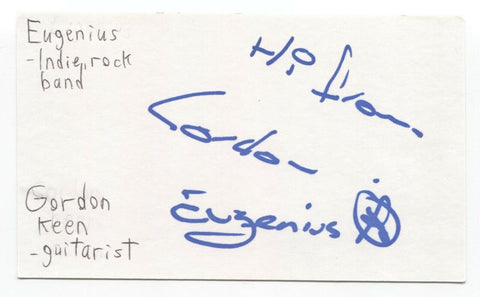 Eugenius
-Indie rock
band
Hi from
Gordon
Eugenius
Gordon
Keen
-guitarist